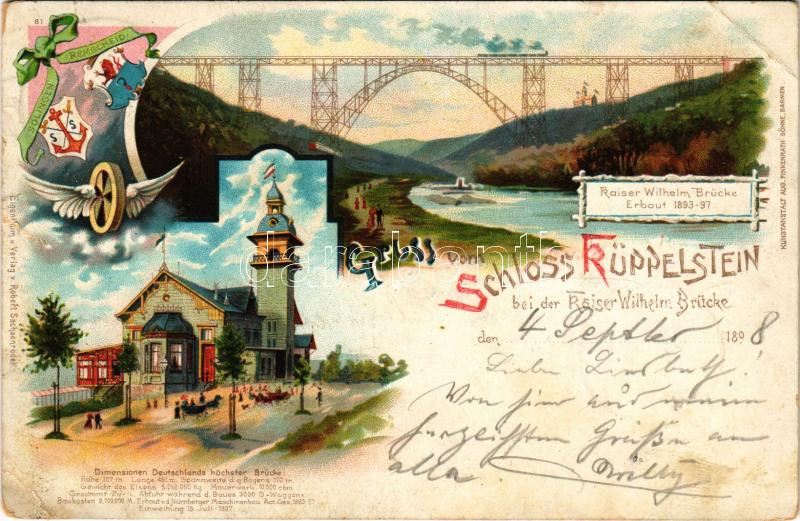 81
REMSCHEID.
SOLINGEN
S S
Kaiser Wilhelm Brücke
Erbaut 1893-97.
KUNSTANSTALT AUG. FINKENRATH SÖHNE, BARMEN
Eigenthum u. Verlag v. Robert Sachsenröder.
Gruss vom
Schloss Küppelstein
bei der Kaiser Wilhelm Brücke
den 4 Septbr 1898
Von hier aus meine
herzlichsten Grüße an
alle Willy
Dimensionen Deutschlands höchster Brücke:
Höhe 107 m. Länge 491 m. Spannweite d. g. Bogens 170 m
Gewicht des Eisens 5,050,000 Kg. Mauerwerk 10,000 cbm
Gesammt Zu- u. Abfuhr während d. Baues 3000 D-Waggons
Erbaut v. d. Nürnberger Maschinenbau Act. Ges. 1893-97
Einweihung 15. Juli 1897.
darabanth.com